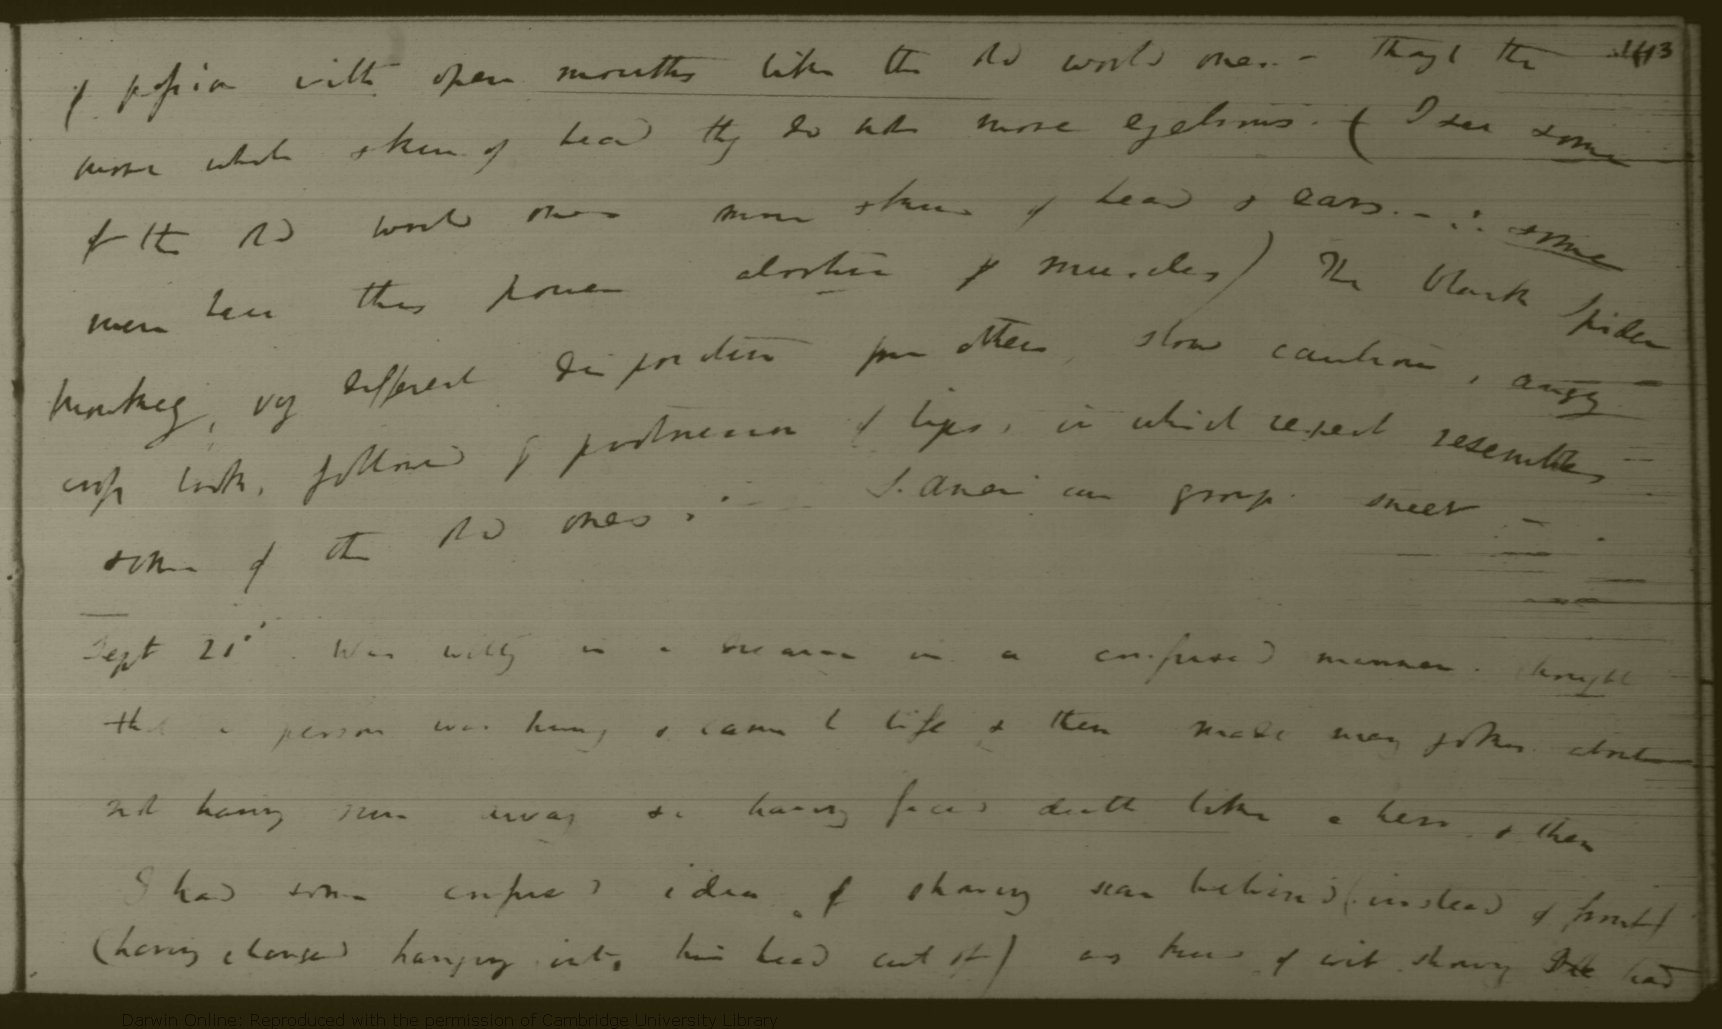 143
of passion with open mouths like the old world ones. – Though they
move whole skin of head they do not move eyebrows. – (I see some
of the old world ones move skin of head & ears. – ∴ some
men have this power abortive of muscles) The black spider
monkey, very different disposition from others, slow cautious, angry
cross look, followed by protrusion of lips, in which respect resembles
some of the old ones: S. American group sneer –
Sept 21st. Was witty in a dream in a confused manner. thought
that a person was hung & came to life & then made many jokes about
not having run away &c having faced death like a hero, & then
I had some confused idea of showing scar behind (instead of front)
(having changed hanging into his head cut off) as kind of wit showing he had
Darwin Online: Reproduced with the permission of Cambridge University Library